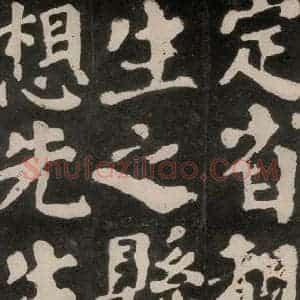 定省
生之縣
想先生
Shufaziliao.COM